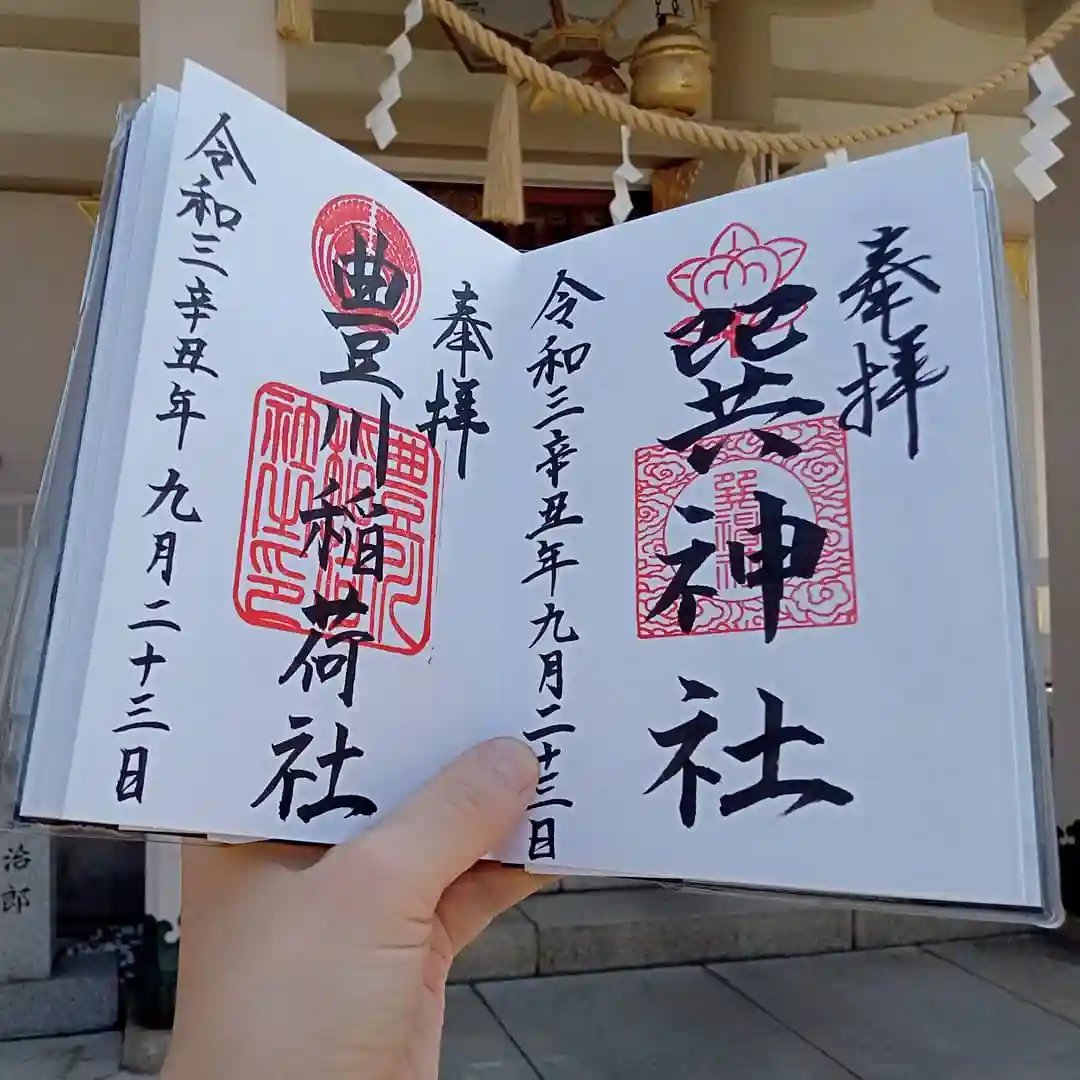 奉拝
巽神社
令和三辛丑年九月二十三日
奉拝
豊川稲荷社
令和三辛丑年九月二十三日
治郎